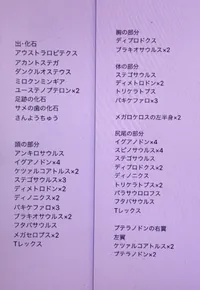 出・化石
アウストラロピテクス
アカントステガ
ダンクルオステウス
ミロクンミンギア
ユーステノプテロン×2
足跡の化石
サメの歯の化石
さんようちゅう
頭の部分
アンキロサウルス
イグアノドン×4
ケツァルコアトルス×2
ステゴサウルス×3
ディメトロドン×2
ディノニクス×2
パキケファロ×3
ブラキオサウルス×2
フタバサウルス
メガセロプス×2
Tレックス
胸の部分
ディプロドクス
ブラキオサウルス×2
体の部分
ステゴサウルス
ディメトロドン×2
トリケラトプス×2
パキケファロ×3
メガロケロスの左半身×2
尻尾の部分
イグアノドン×4
スピノサウルス×4
ステゴサウルス
ディプロドクス×2
ディノニクス
トリケラトプス×2
パラサウロロフス
フタバサウルス
Tレックス
プテラノドンの右翼
左翼
ケツァルコアトルス×2
プテラノドン×2